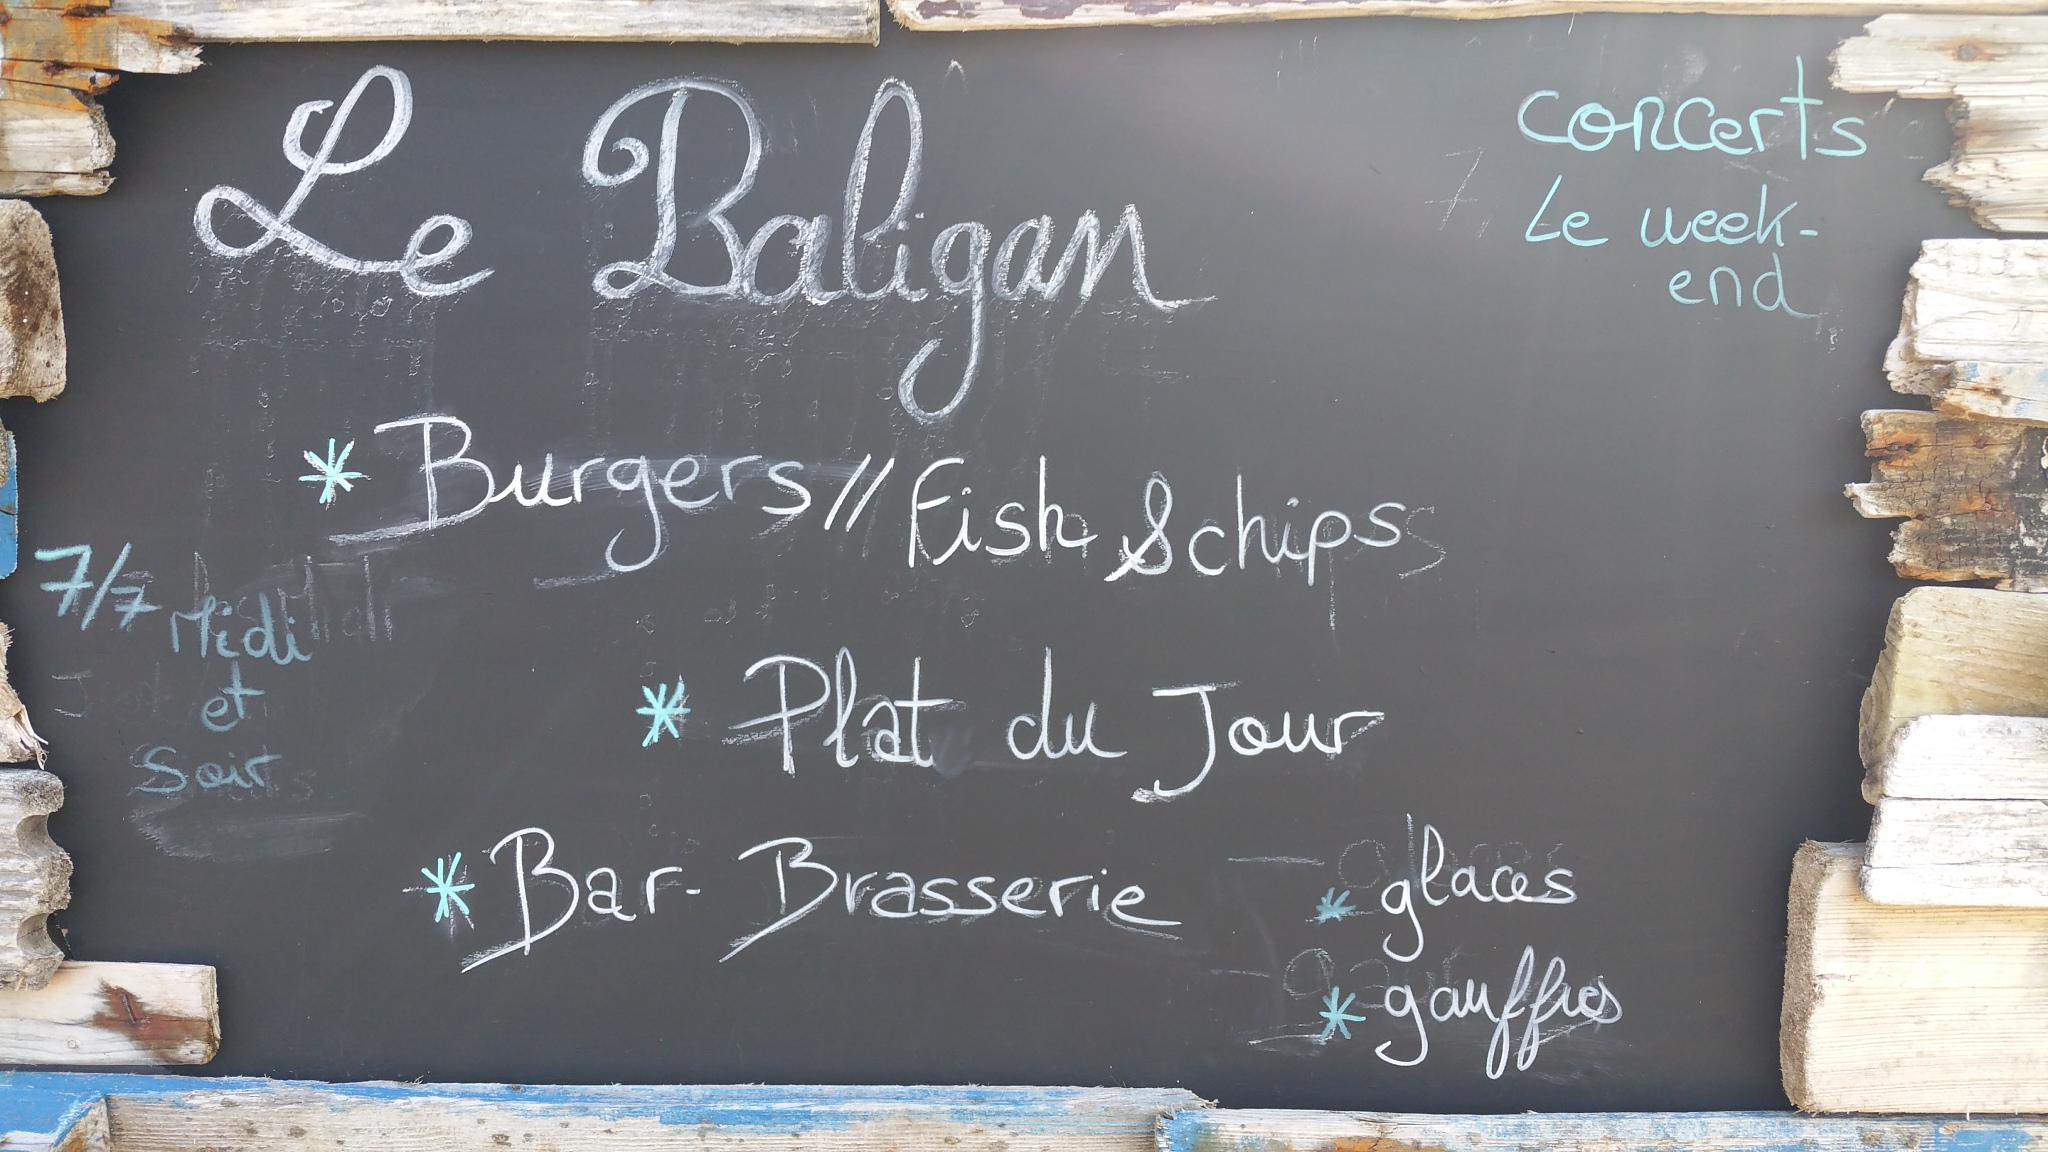 Le Baligan
concerts
Le week-
end
* Burgers // Fish & chips
7/7 Midi
et
Soir
* Plat du Jour
* Bar-Brasserie
* glaces
* gauffres